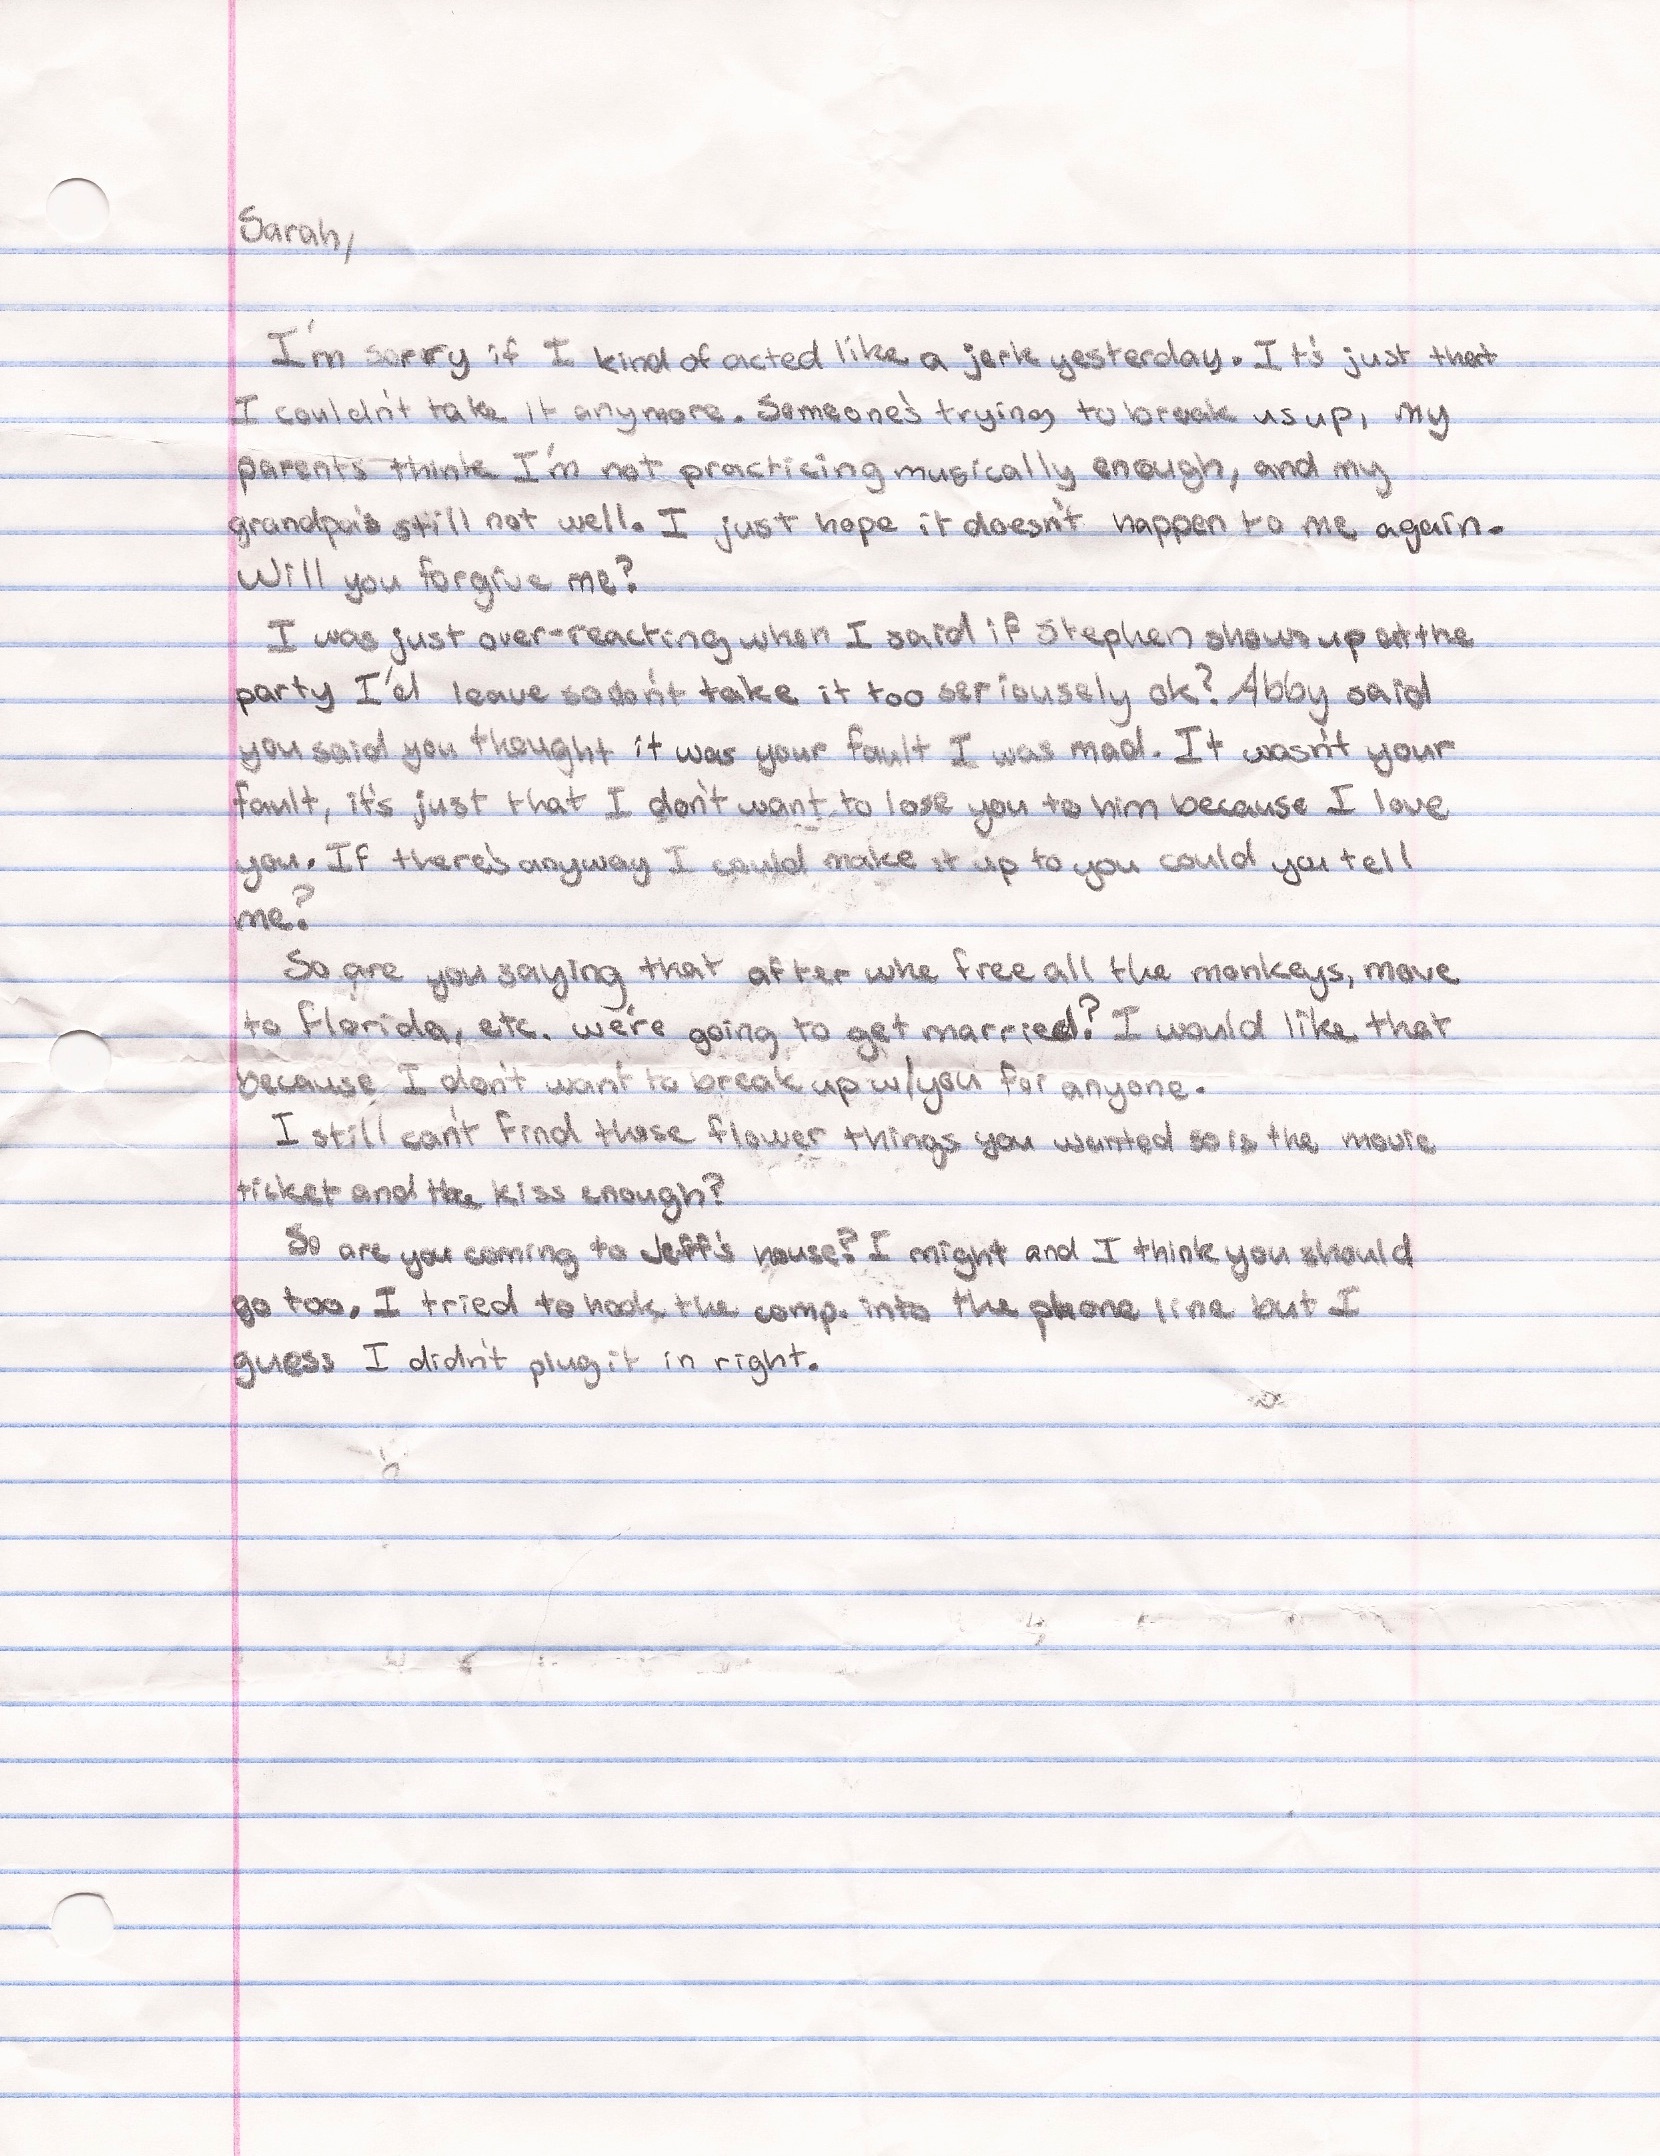 Sarah,
I'm sorry if I kind of acted like a jerk yesterday. It's just that
I couldn't take it anymore. Someone's trying to break us up, my
parents think I'm not practicing musically enough, and my
grandpa's still not well. I just hope it doesn't happen to me again.
Will you forgive me?
I was just over-reacting when I said if Stephen shows up at the
party I'd leave so don't take it too seriousely ok? Abby said
you said you thought it was your fault I was mad. It wasn't your
fault, it's just that I don't want to lose you to him because I love
you. If there's anyway I could make it up to you could you tell
me?
So are you saying that after whe free all the monkeys, move
to florida, etc. we're going to get married? I would like that
because I don't want to break up w/you for anyone.
I still can't find those flower things you wanted so is the movie
ticket and the kiss enough?
So are you coming to Jeff's house? I might and I think you should
go too. I tried to hook the comp. into the phone line but I
guess I didn't plug it in right.